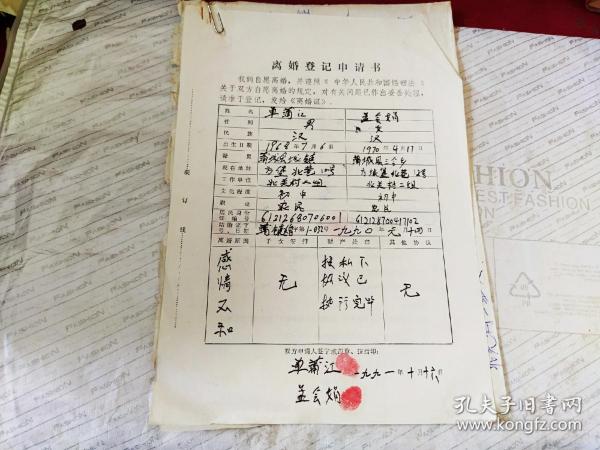 离婚登记申请书
我们自愿离婚，并遵照《中华人民共和国婚姻法》
关于双方自愿离婚的规定，对有关问题已作出妥善处理，
请准予登记，发给《离婚证》。
姓名 单蒲江 孟会娟
性别 男 女
民族 汉 汉
出生日期 1968年7月6日 1970年4月17日
籍贯 蒲城县 蒲城县
现在住址
工作单位 北关村二组
文化程度 初中 初中
职业 农民 农民
居民身份证编号 612126807060 612128700417102
一九九〇年元月十四日
离婚原因 子女安排 财产处理 其他协议
感情不和
无
按私下协议已执行完毕
无
装订线
双方申请人签字或盖章、按指印：
单蒲江 一九九一年十月十六日
孟会娟
FASHION
BEST FASHION
孔夫子旧书网
www.kongfz.com